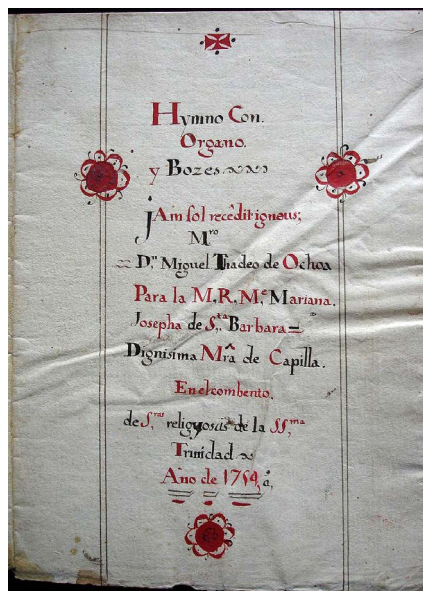 Hymno Con.
Organo.
y Bozes.
jAm sol recèdit igneus;
Mro
Dn. Miguel Thadeo de Ochoa
Para la M. R. Me. Mariana.
Josepha de Sta. Barbara
Dignisima Mrâ de Capilla.
En el combento.
de Sras religyosas de la SSma
Trinidad
Año de 1754, a,